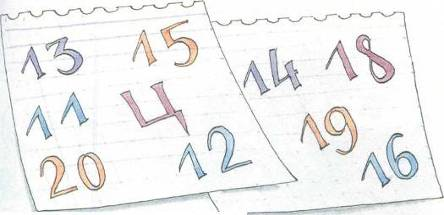 13 15
11 Ц
20 12
14 18
19
16